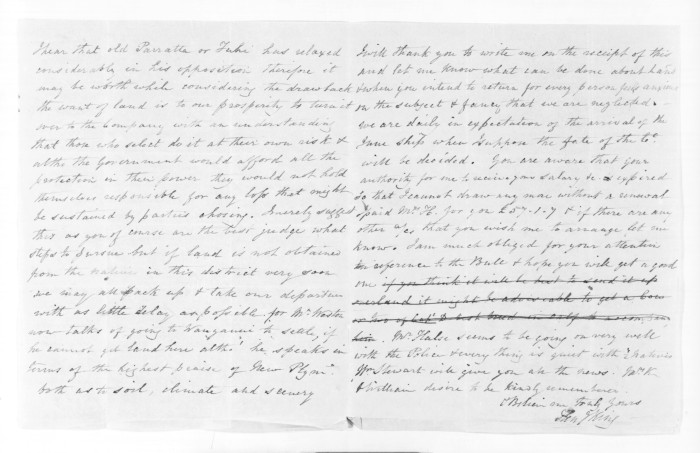 I hear that old Parratta or Tuhi has relaxed
considerably in his opposition therefore it
may be worth while considering the draw back
the want of land is to our prosperity to turn it
over to the Company with an understanding
that those who select do it at their own risk &
altho the Government would afford all the
protection in their power they would not hold
themselves responsible for any loss that might
be sustained by parties choosing. I merely suggest
this as you of course are the best judge what
steps to pursue but if land is not obtained
from the natives in this district very soon
we may all pack up & take our departure
with as little delay as possible for Mr
now talks of going to Wanganui to settle, if
he cannot get land here altho' he speaks in
terms of the highest praise of New Plymth
both as to soil, climate and scenery
I will thank you to write me on the receipt of this
and let me know what can be done about land
& when you intend to return for every person
on the subject & fancy that we are neglected. -
we are daily in expectation of the arrival of the
June ship when I suppose the fate of the Co.
will be decided. You are aware that your
authority for me receiving your salary &c expired
so that I cannot draw any more without a renewal
I paid Mr H. for you £57-1-7 & if there are any
other a/cs that you wish me to arrange let me
know. I am much obliged for your attention
in reference to the Bull & hope you will get a good
one if you think it will be best to send it up
overland it might be advisable to get a Cow
or two
Mr Halse seems to be going on very well
with the Police & every thing is quiet with E Natives
Mr Stewart will give you all the news. Mrs K
& William desire to be kindly remembered.
Believe me Truly Yours
King